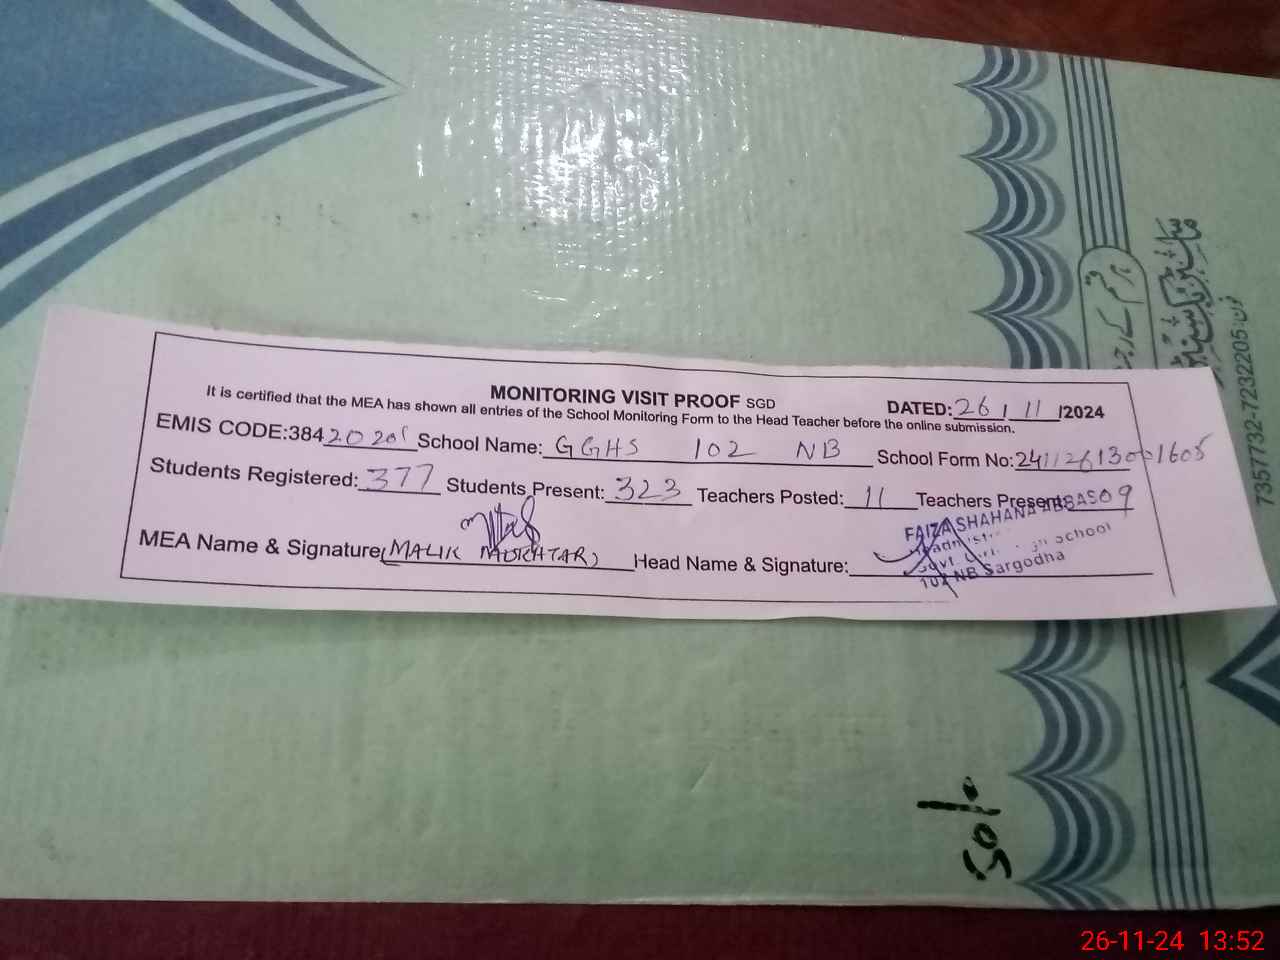 MONITORING VISIT PROOF SGD
DATED: 26 / 11 /2024
It is certified that the MEA has shown all entries of the School Monitoring Form to the Head Teacher before the online submission.
EMIS CODE:384 20201 School Name: GGHS 102 NB School Form No: 241126130001605
Students Registered: 377 Students Present: 323 Teachers Posted: 11 Teachers Present: 09
MEA Name & Signature (MALIK MUKHTAR) Head Name & Signature:
FAIZA SHAHANA ABBAS
School
102 NB Sargodha
7357732-7232205:فون
26-11-24 13:52